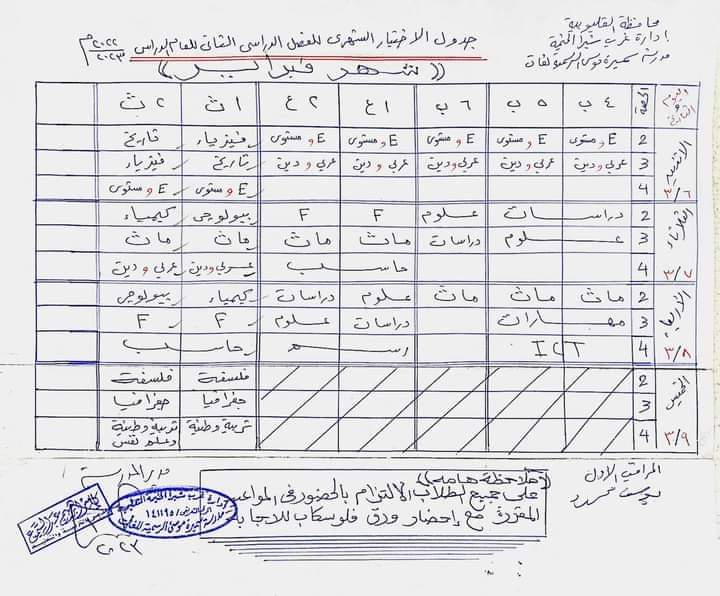 محافظة القليوبية
إدارة غرب شبرا الخيمة
مدرسة سميرة موسى الرسمية لغات
جدول الاختبار الشهرى للفصل الدراسى الثانى للعام الدراسى ٢٠٢٢/٢٠٢٣م
((شهر فبراير))
اليوم والتاريخ الحصة ٤ ب ٥ ب ٦ ب ١ ع ٢ ع ١ ث ٢ ث
الاثنين ٣/٦
2 E ومستوى E ومستوى E ومستوى E ومستوى E ومستوى فيزياء تاريخ
3 عربى ودين عربى ودين عربى ودين عربى ودين عربى ودين تاريخ فيزياء
4 E ومستوى E ومستوى
الثلاثاء ٣/٧
2 دراسات علوم F F بيولوجى كيمياء
3 علوم دراسات ماث ماث ماث ماث
4 حاسب عربى ودين عربى ودين
الأربعاء ٣/٨
2 ماث ماث ماث علوم دراسات كيمياء بيولوجى
3 مهارات دراسات علوم F F
4 ICT رسم حاسب
الخميس ٣/٩
2 فلسفة فلسفة
3 جغرافيا جغرافيا
4 تربية وطنية تربية وطنية وعلم نفس
المراقب الأول
يوسف محمود
(ملاحظة هامة)
على جميع الطلاب الالتزام بالحضور فى المواعيد
المقررة مع إحضار ورق فلوسكاب للاجابة
مدير المدرسة
٢٠٢٣